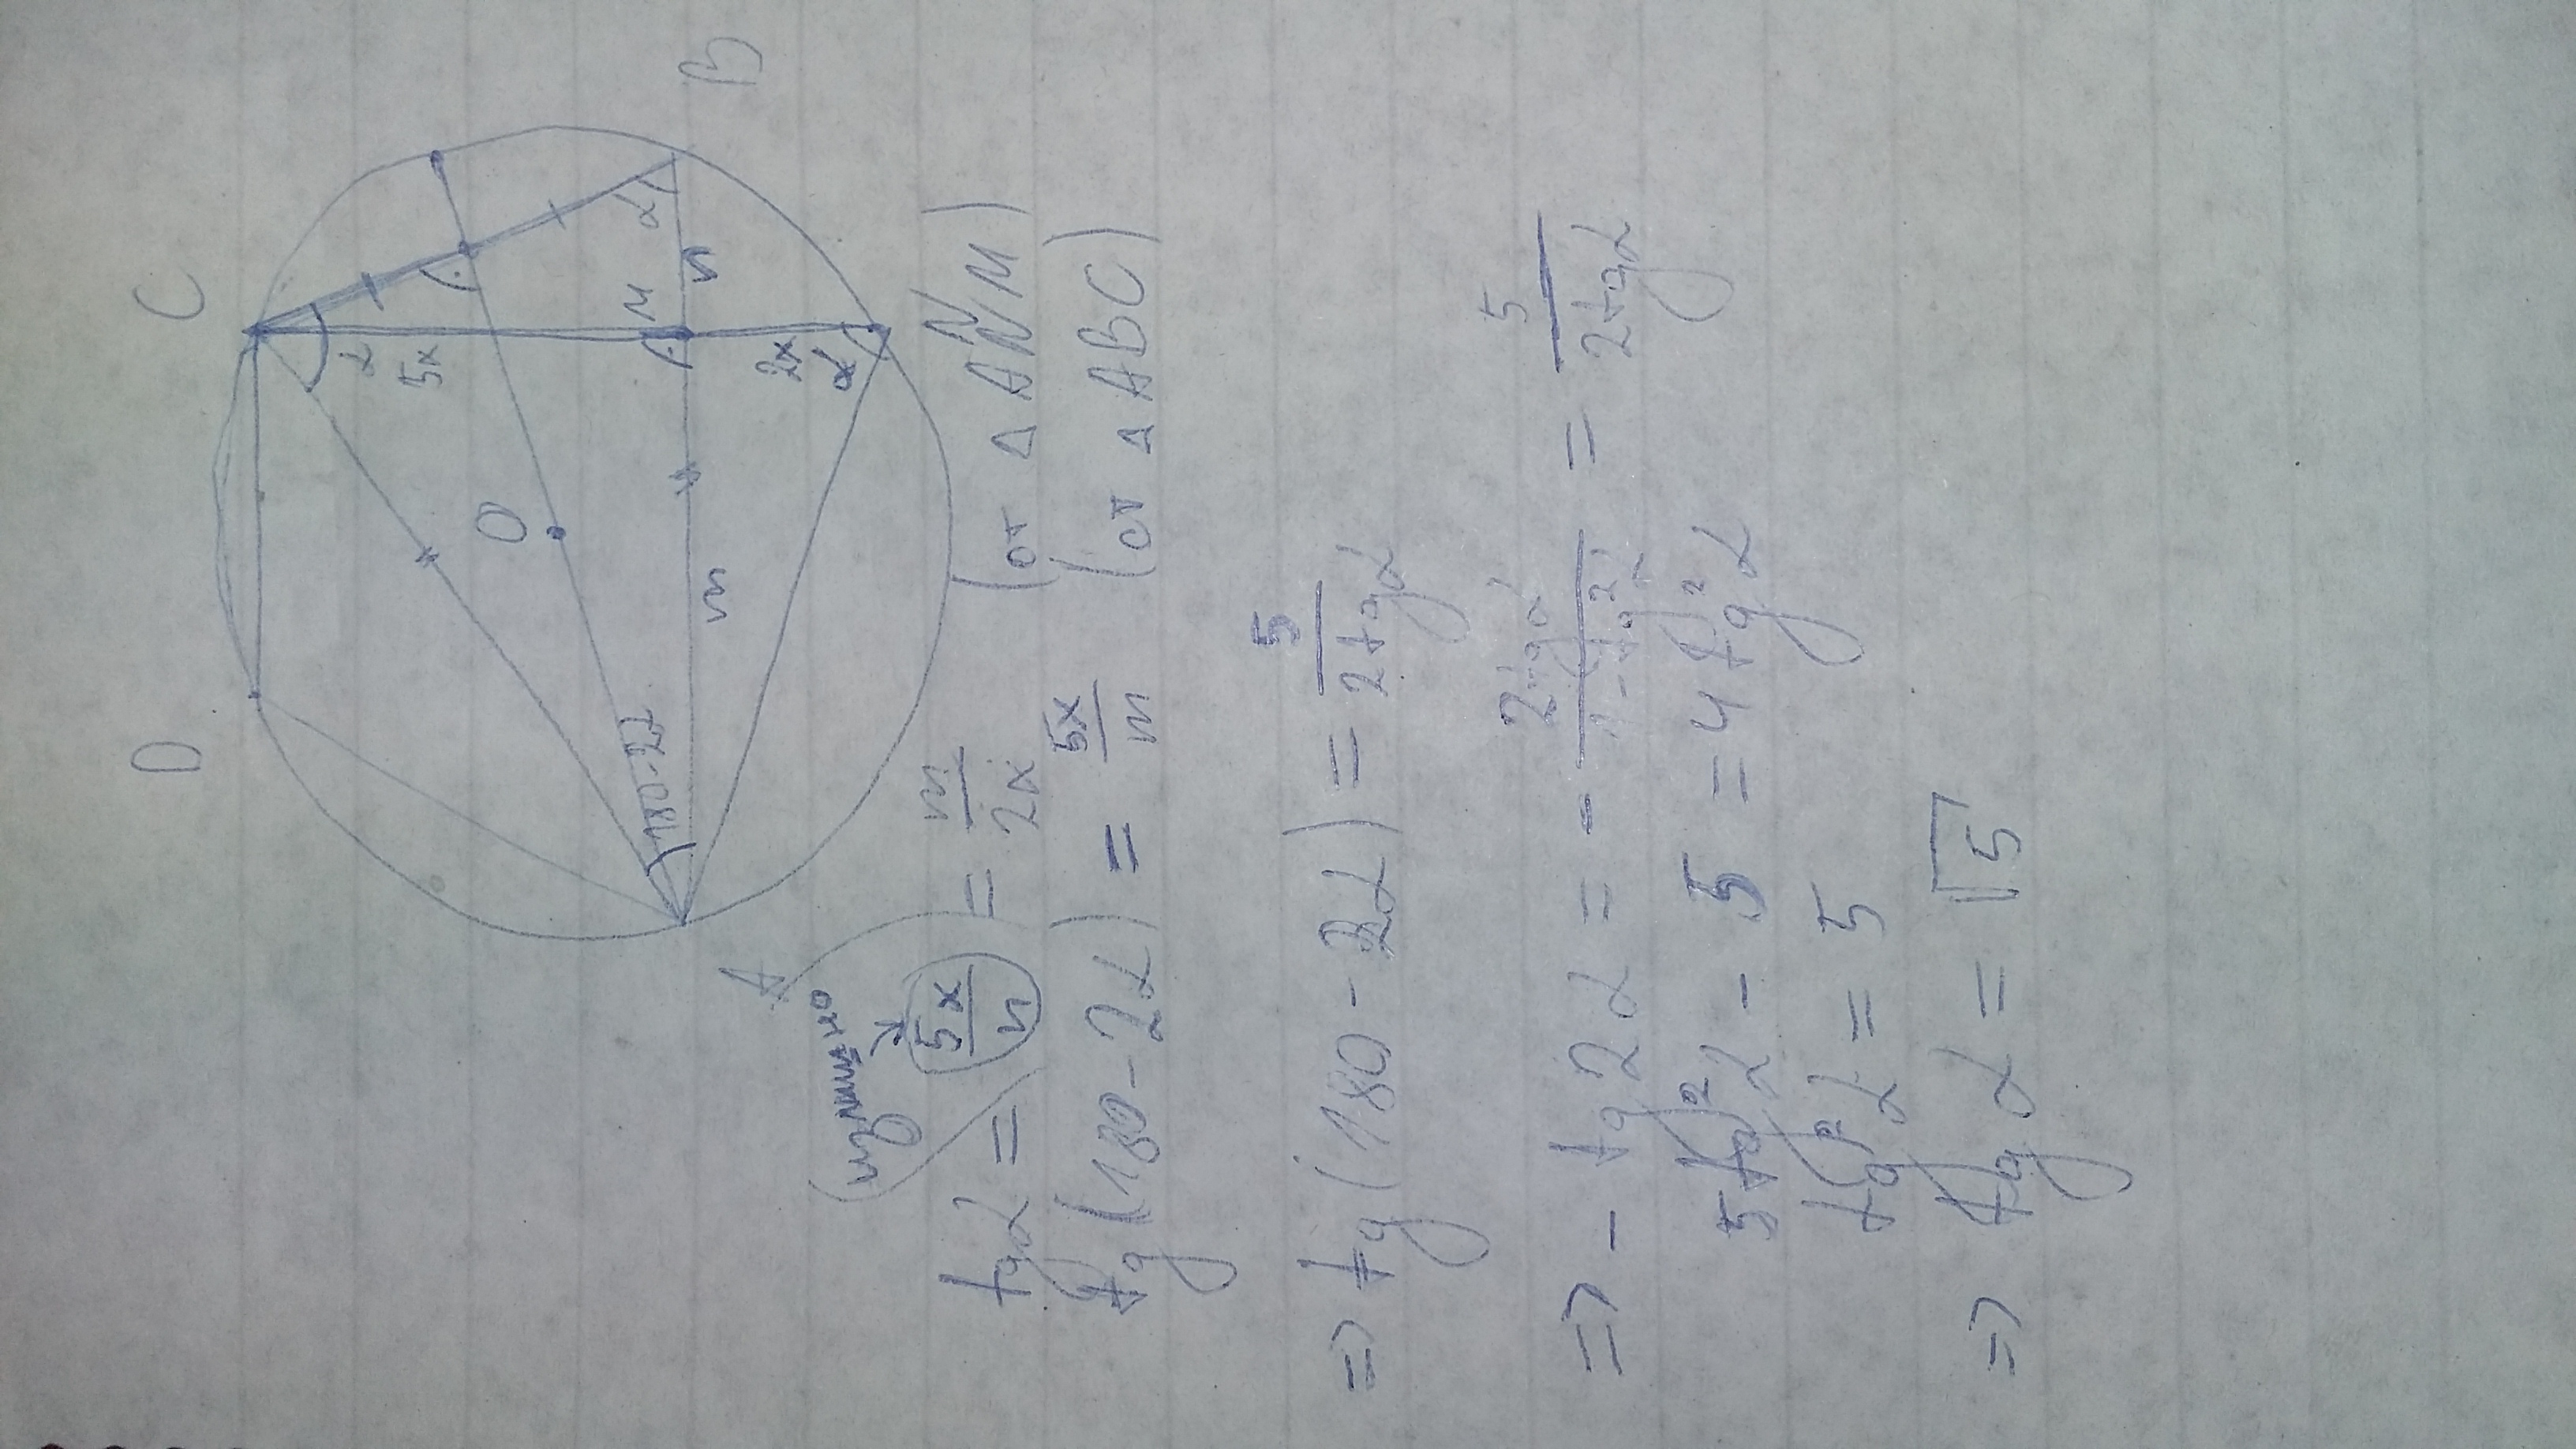 D
C
α
5x
O
M
α
180-2α
m
n
A
B
2x
α
(излишно)
tgα = (5x/n) = m/2x (от △ ANM)
tg(180-2α) = 5x/m (от △ ABC)
=> tg(180-2α) = 5/2tgα
=> - tg2α = - 2tgα/1-tg²α = 5/2tgα
5tg²α - 5 = 4tg²α
tg²α = 5
=> tgα = √5